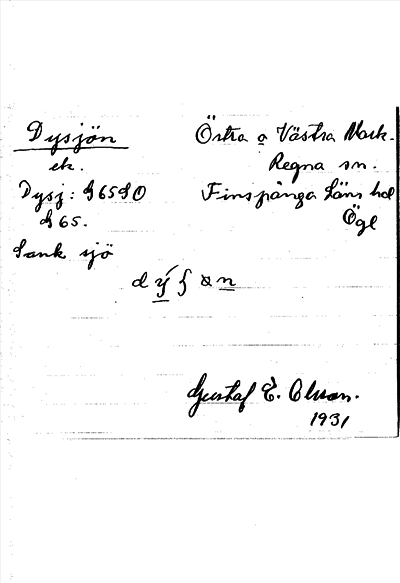 Dysjön
ek.
Dysj: G65SO
G65.
Sank sjö
Östra o Västra Mark.
Regna sn.
Finspånga Läns hd
Ögl
Gustaf E. Olsson.
1931